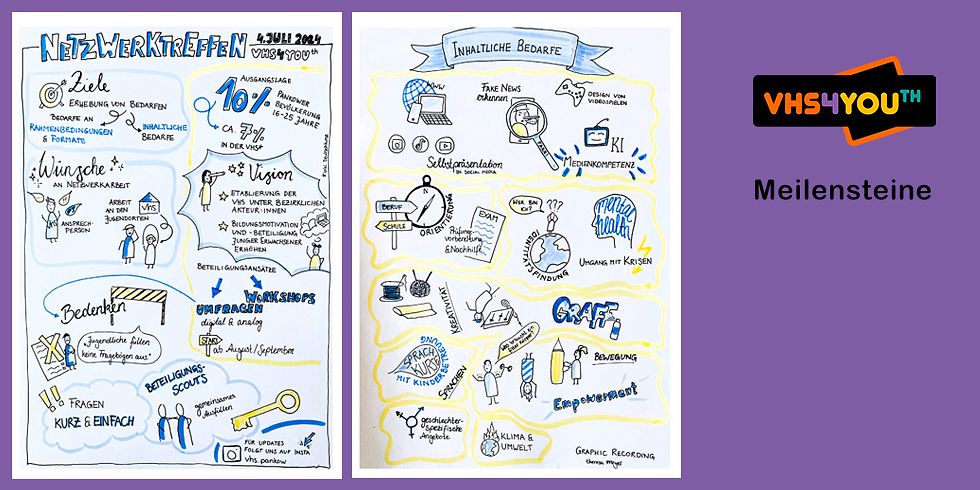 NETZWERKTREFFEN
4. JULI 2024
VHS4YOUth
Ziele
ERHEBUNG VON BEDARFEN
BEDARFE AN
RAHMENBEDINGUNGEN
& FORMATE
INHALTLICHE
BEDARFE
AUSGANGSLAGE
10%
PANKOWER
BEVÖLKERUNG
16-25 JAHRE
CA. 7%
IN DER VHS
Wünsche
AN NETZWERKARBEIT
ANSPRECH-
PERSON
ARBEIT
AN DEN
JUGENDORTEN
vhs
Vision
ETABLIERUNG DER
VHS UNTER BEZIRKLICHEN
AKTEUR:INNEN
BILDUNGSMOTIVATION
UND -BETEILIGUNG
JUNGER ERWACHSENER
ERHÖHEN
BETEILIGUNGSANSÄTZE
WORKSHOPS
UMFRAGEN
digital & analog
START
ab August/September
Bedenken
"Jugendliche füllen
keine Fragebögen aus"
FRAGEN
KURZ & EINFACH
BETEILIGUNGS-
SCOUTS
gemeinsames
Ausfüllen
FÜR UPDATES
FOLGT UNS AUF INSTA
vhs.pankow
INHALTLICHE BEDARFE
WWW
FAKE NEWS
erkennen
FAKE
DESIGN VON
VIDEOSPIELEN
KI
Selbstpräsentation
IN SOCIAL MEDIA
MEDIENKOMPETENZ
BERUF
SCHULE
N
ORIENTIERUNG
EXAM
Prüfungs-
vorbereitung
& Nachhilfe
WER BIN
ICH?
???
IDENTITÄTSFINDUNG
mental
health
UMGANG MIT KRISEN
KREATIVITÄT
GRAFF
SPRACH
KURSE
MIT KINDERBETREUUNG
SPRACHEN
BEWEGUNG
Empowerment
geschlechter-
spezifische
Angebote
KLIMA &
UMWELT
GRAPHIC RECORDING
theresa Meyer
VHS4YOUTH
Meilensteine